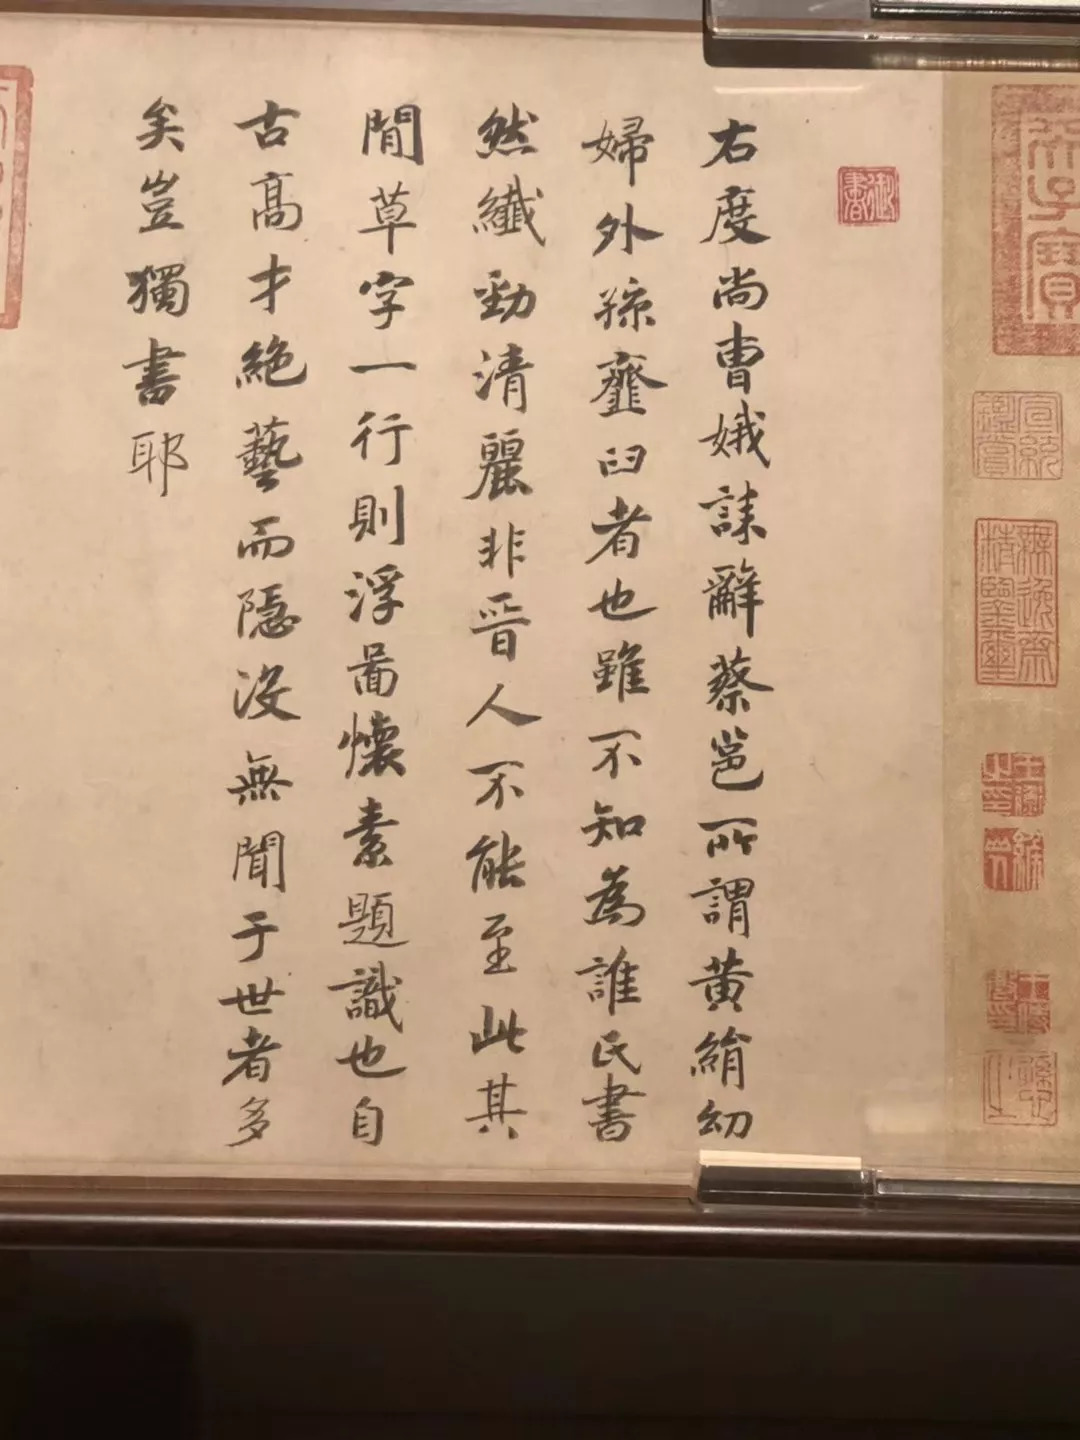 右度尚曹娥誄辭蔡邕所謂黃絹幼
婦外孫虀臼者也雖不知為誰氏書
然纖勁清麗非晉人不能至此其
間草字一行則浮啚懷素題識也自
古高才絕藝而隱沒無聞于世者多
矣豈獨書耶
御書
宣統鑑賞
無逸齋精鑒璽